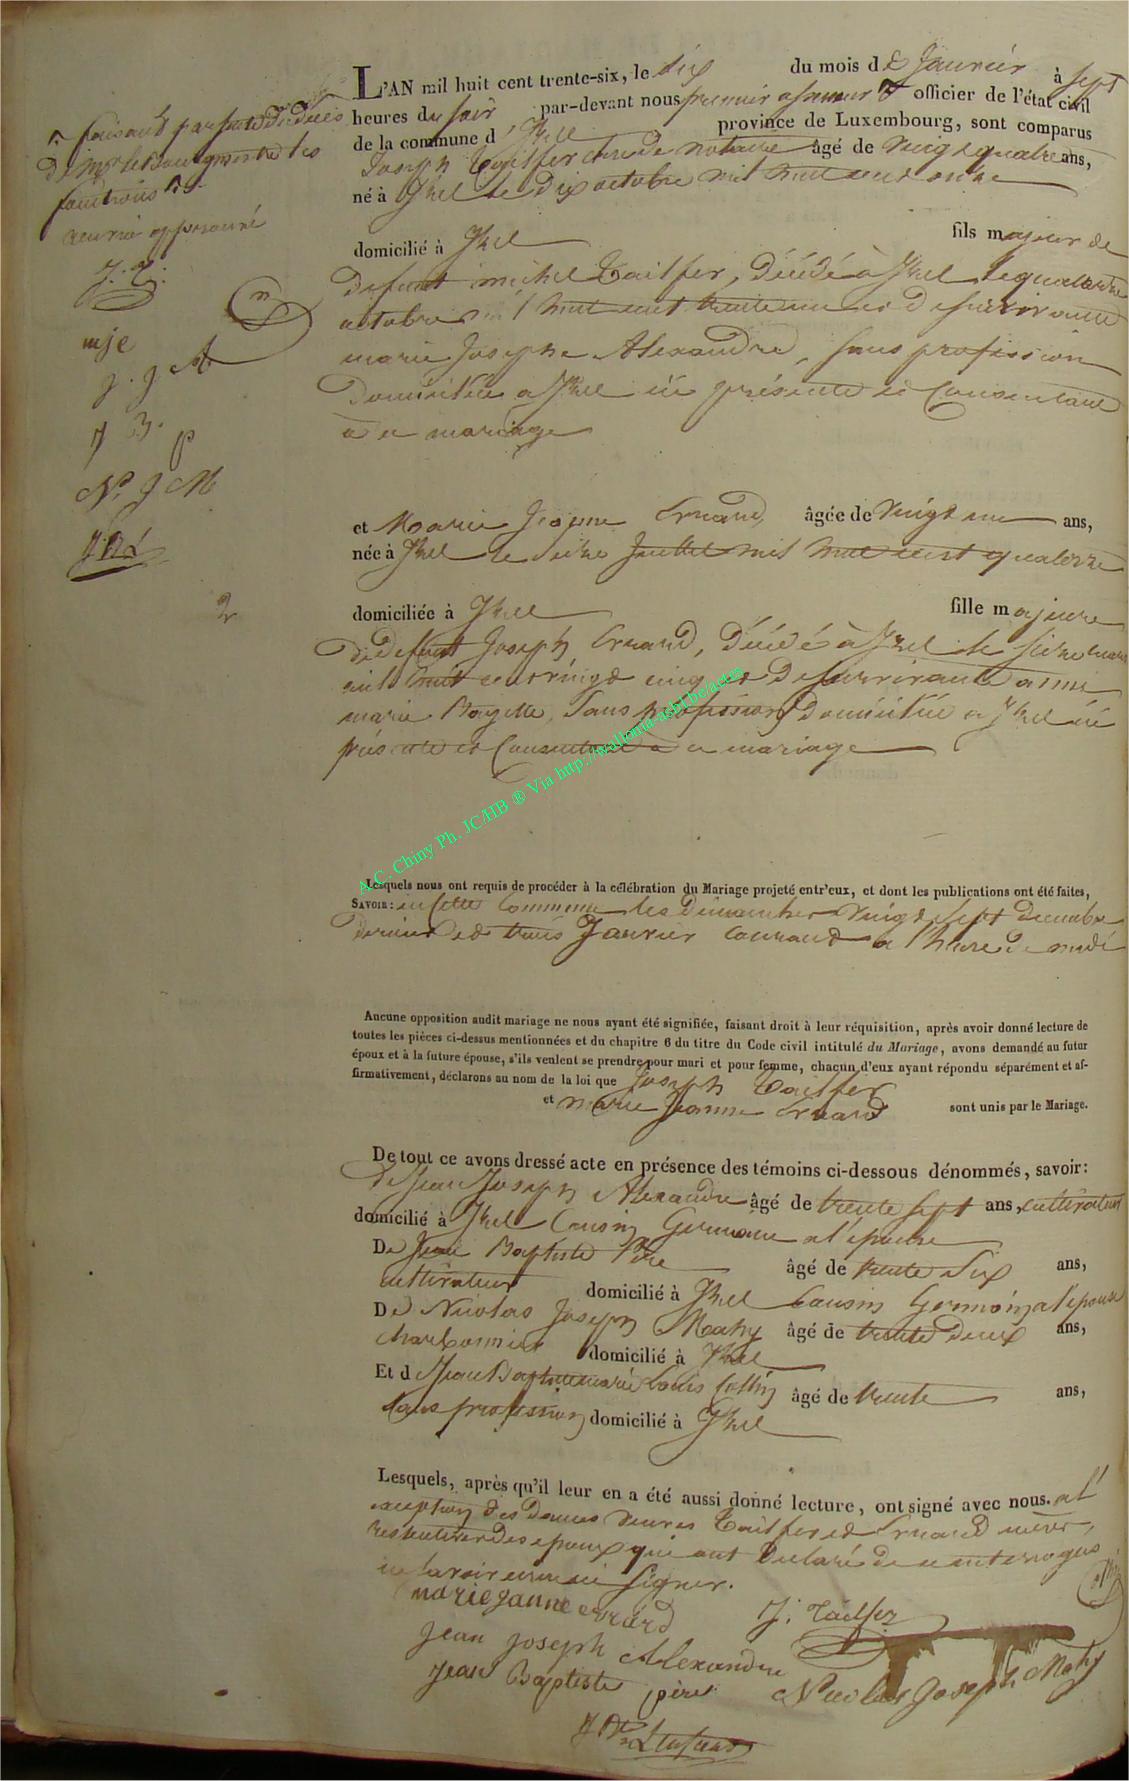 L'AN mil huit cent trente-six, le six du mois de Janvier à sept
heures du soir par-devant nous premier assesseur officier de l'état civil
de la commune d'Izel province de Luxembourg, sont comparus
Joseph Tailfer clerc de notaire âgé de vingt quatre ans,
né à Izel le dix octobre mil huit cent onze
domicilié à Izel fils majeur de
defunt michel Tailfer, décédé à Izel le quatorze
octobre mil huit cent trente un et de survivante
marie Josephe Alexandre, sans profession
domiciliée a Izel ici présente et consentante
a ce mariage
et Marie Jeanne Evrard, âgée de vingt un ans,
née à Izel le seize Juillet mil huit cent quatorze
domiciliée à Izel fille majeure
de defunt Joseph Evrard, décédé à Izel le seize mars
mil huit cent vingt cinq et de survivante
marie sans profession domiciliée a Izel ici
présente et consentante a ce mariage
A.C. Chiny Ph. JC/HB ® Via http://wallonia-asbl.be/actes
Lesquels nous ont requis de procéder à la célébration du Mariage projeté entr'eux, et dont les publications ont été faites,
SAVOIR: en cette commune les dimanches vingt sept decembre
dernier et trois Janvier courant a l'heure de midi
Aucune opposition audit mariage ne nous ayant été signifiée, faisant droit à leur réquisition, après avoir donné lecture de
toutes les pièces ci-dessus mentionnées et du chapitre 6 du titre du Code civil intitulé du Mariage, avons demandé au futur
époux et à la future épouse, s'ils veulent se prendre pour mari et pour femme, chacun d'eux ayant répondu séparément et af-
firmativement, déclarons au nom de la loi que Joseph Tailfer
et marie Jeanne Evrard sont unis par le Mariage.
De tout ce avons dressé acte en présence des témoins ci-dessous dénommés, savoir:
de Jean Joseph Alexandre âgé de trente sept ans, cultivateur
domicilié à Izel cousin Germain a l'epouse
De Jean Baptiste Père âgé de trente six ans,
cultivateur domicilié à Izel cousin Germain a l'epouse
De Nicolas Joseph Mahy âgé de trente deux ans,
charbonnier domicilié à Izel
Et de Jean Baptiste marie Louis Collin âgé de trente ans,
sans profession domicilié à Izel
Lesquels, après qu'il leur en a été aussi donné lecture, ont signé avec nous. a l'
exception des Dames veuves Tailfer et Evrard meres,
respectives des epoux qui ont declaré de ce interrogés
ne savoir ecrire ni signer.
marie Janne evrard
J: Tailfer
Jean Joseph Alexandre
Jean Baptiste père
Nicolas Joseph Mahy
faisant par suite du décès
les
fonctions
approuvé
J. T.
mje
J. J A
J B. p
N. J M
2